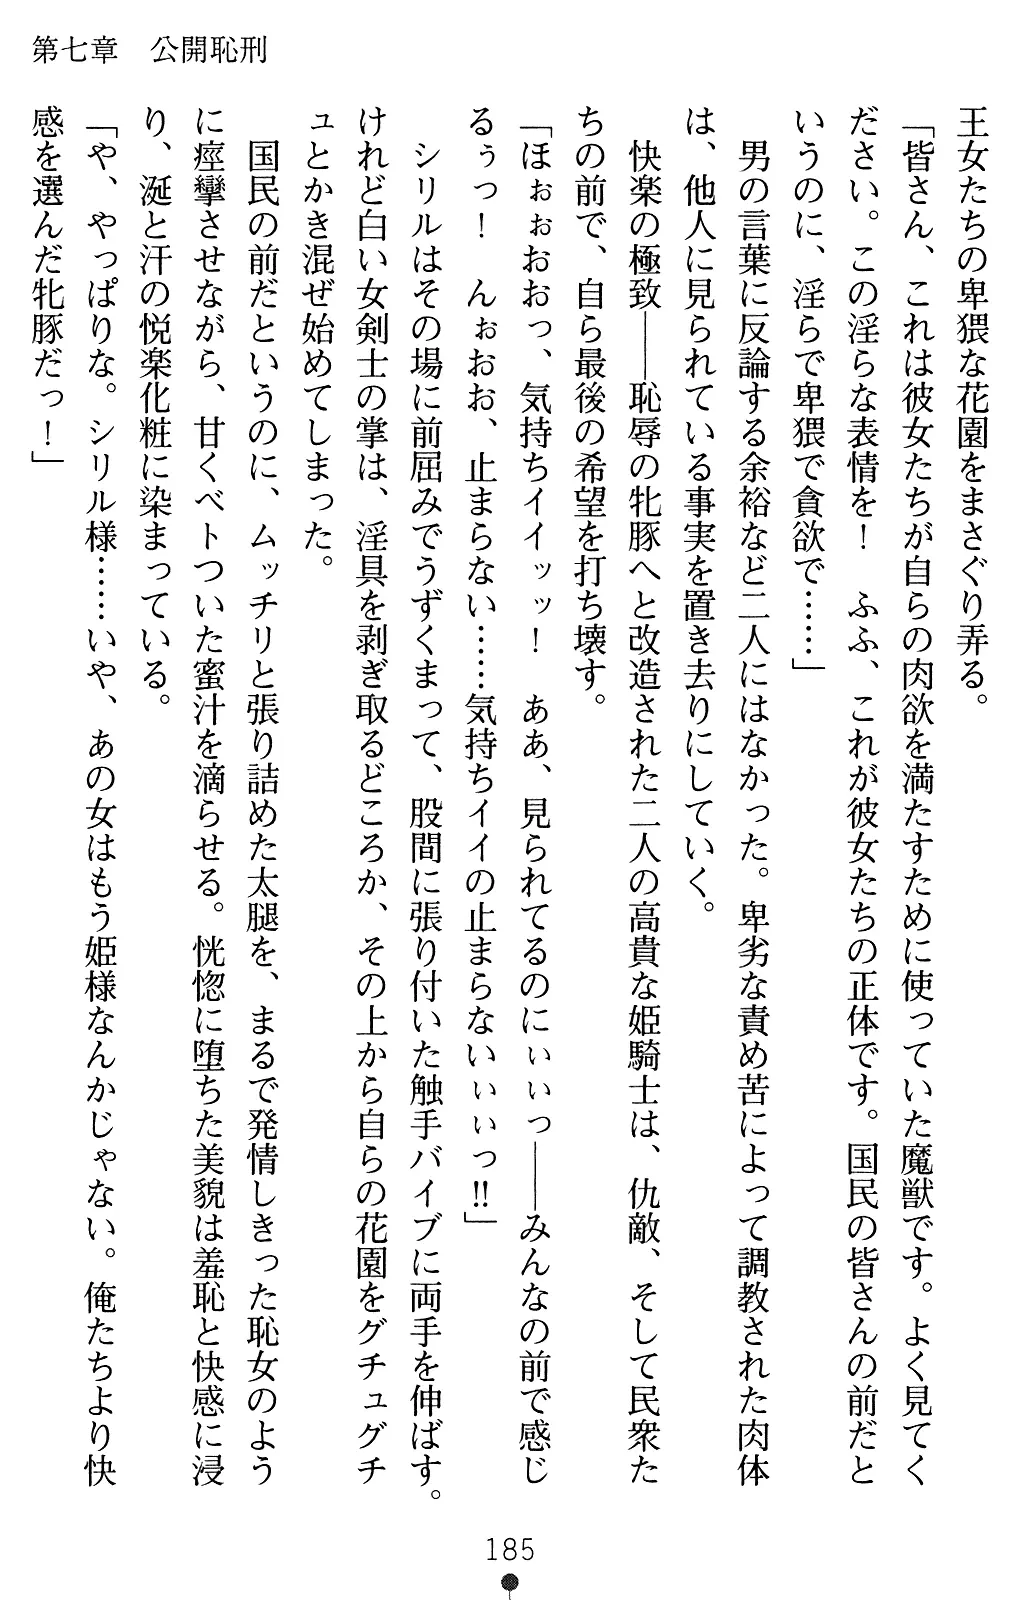 第七章　公開恥刑
王女たちの卑猥な花園をまさぐり弄る。
「皆さん、これは彼女たちが自らの肉欲を満たすために使っていた魔獣です。よく見てく
ださい。この淫らな表情を！　ふふ、これが彼女たちの正体です。国民の皆さんの前だと
いうのに、淫らで卑猥で貪欲で……」
男の言葉に反論する余裕など二人にはなかった。卑劣な責め苦によって調教された肉体
は、他人に見られている事実を置き去りにしていく。
快楽の極致――恥辱の牝豚へと改造された二人の高貴な姫騎士は、仇敵、そして民衆た
ちの前で、自ら最後の希望を打ち壊す。
「ほぉぉおおっ、気持ちイイィッッ！　ああ、見られてるのにぃぃっ――みんなの前で感じ
るぅっ！　んぉおお、止まらない……気持ちイイの止まらないぃぃっ!!」
シリルはその場に前屈みでうずくまって、股間に張り付いた触手バイブに両手を伸ばす。
けれど白い女剣士の掌は、淫具を剥ぎ取るどころか、その上から自らの花園をグチュグチ
ュとかき混ぜ始めてしまった。
国民の前だというのに、ムッチリと張り詰めた太腿を、まるで発情しきった恥女のよう
に痙攣させながら、甘くベトついた蜜汁を滴らせる。恍惚に堕ちた美貌は羞恥と快感に浸
り、涎と汗の悦楽化粧に染まっている。
「や、やっぱりな。シリル様……いや、あの女はもう姫様なんかじゃない。俺たちより快
感を選んだ牝豚だっ！」
185